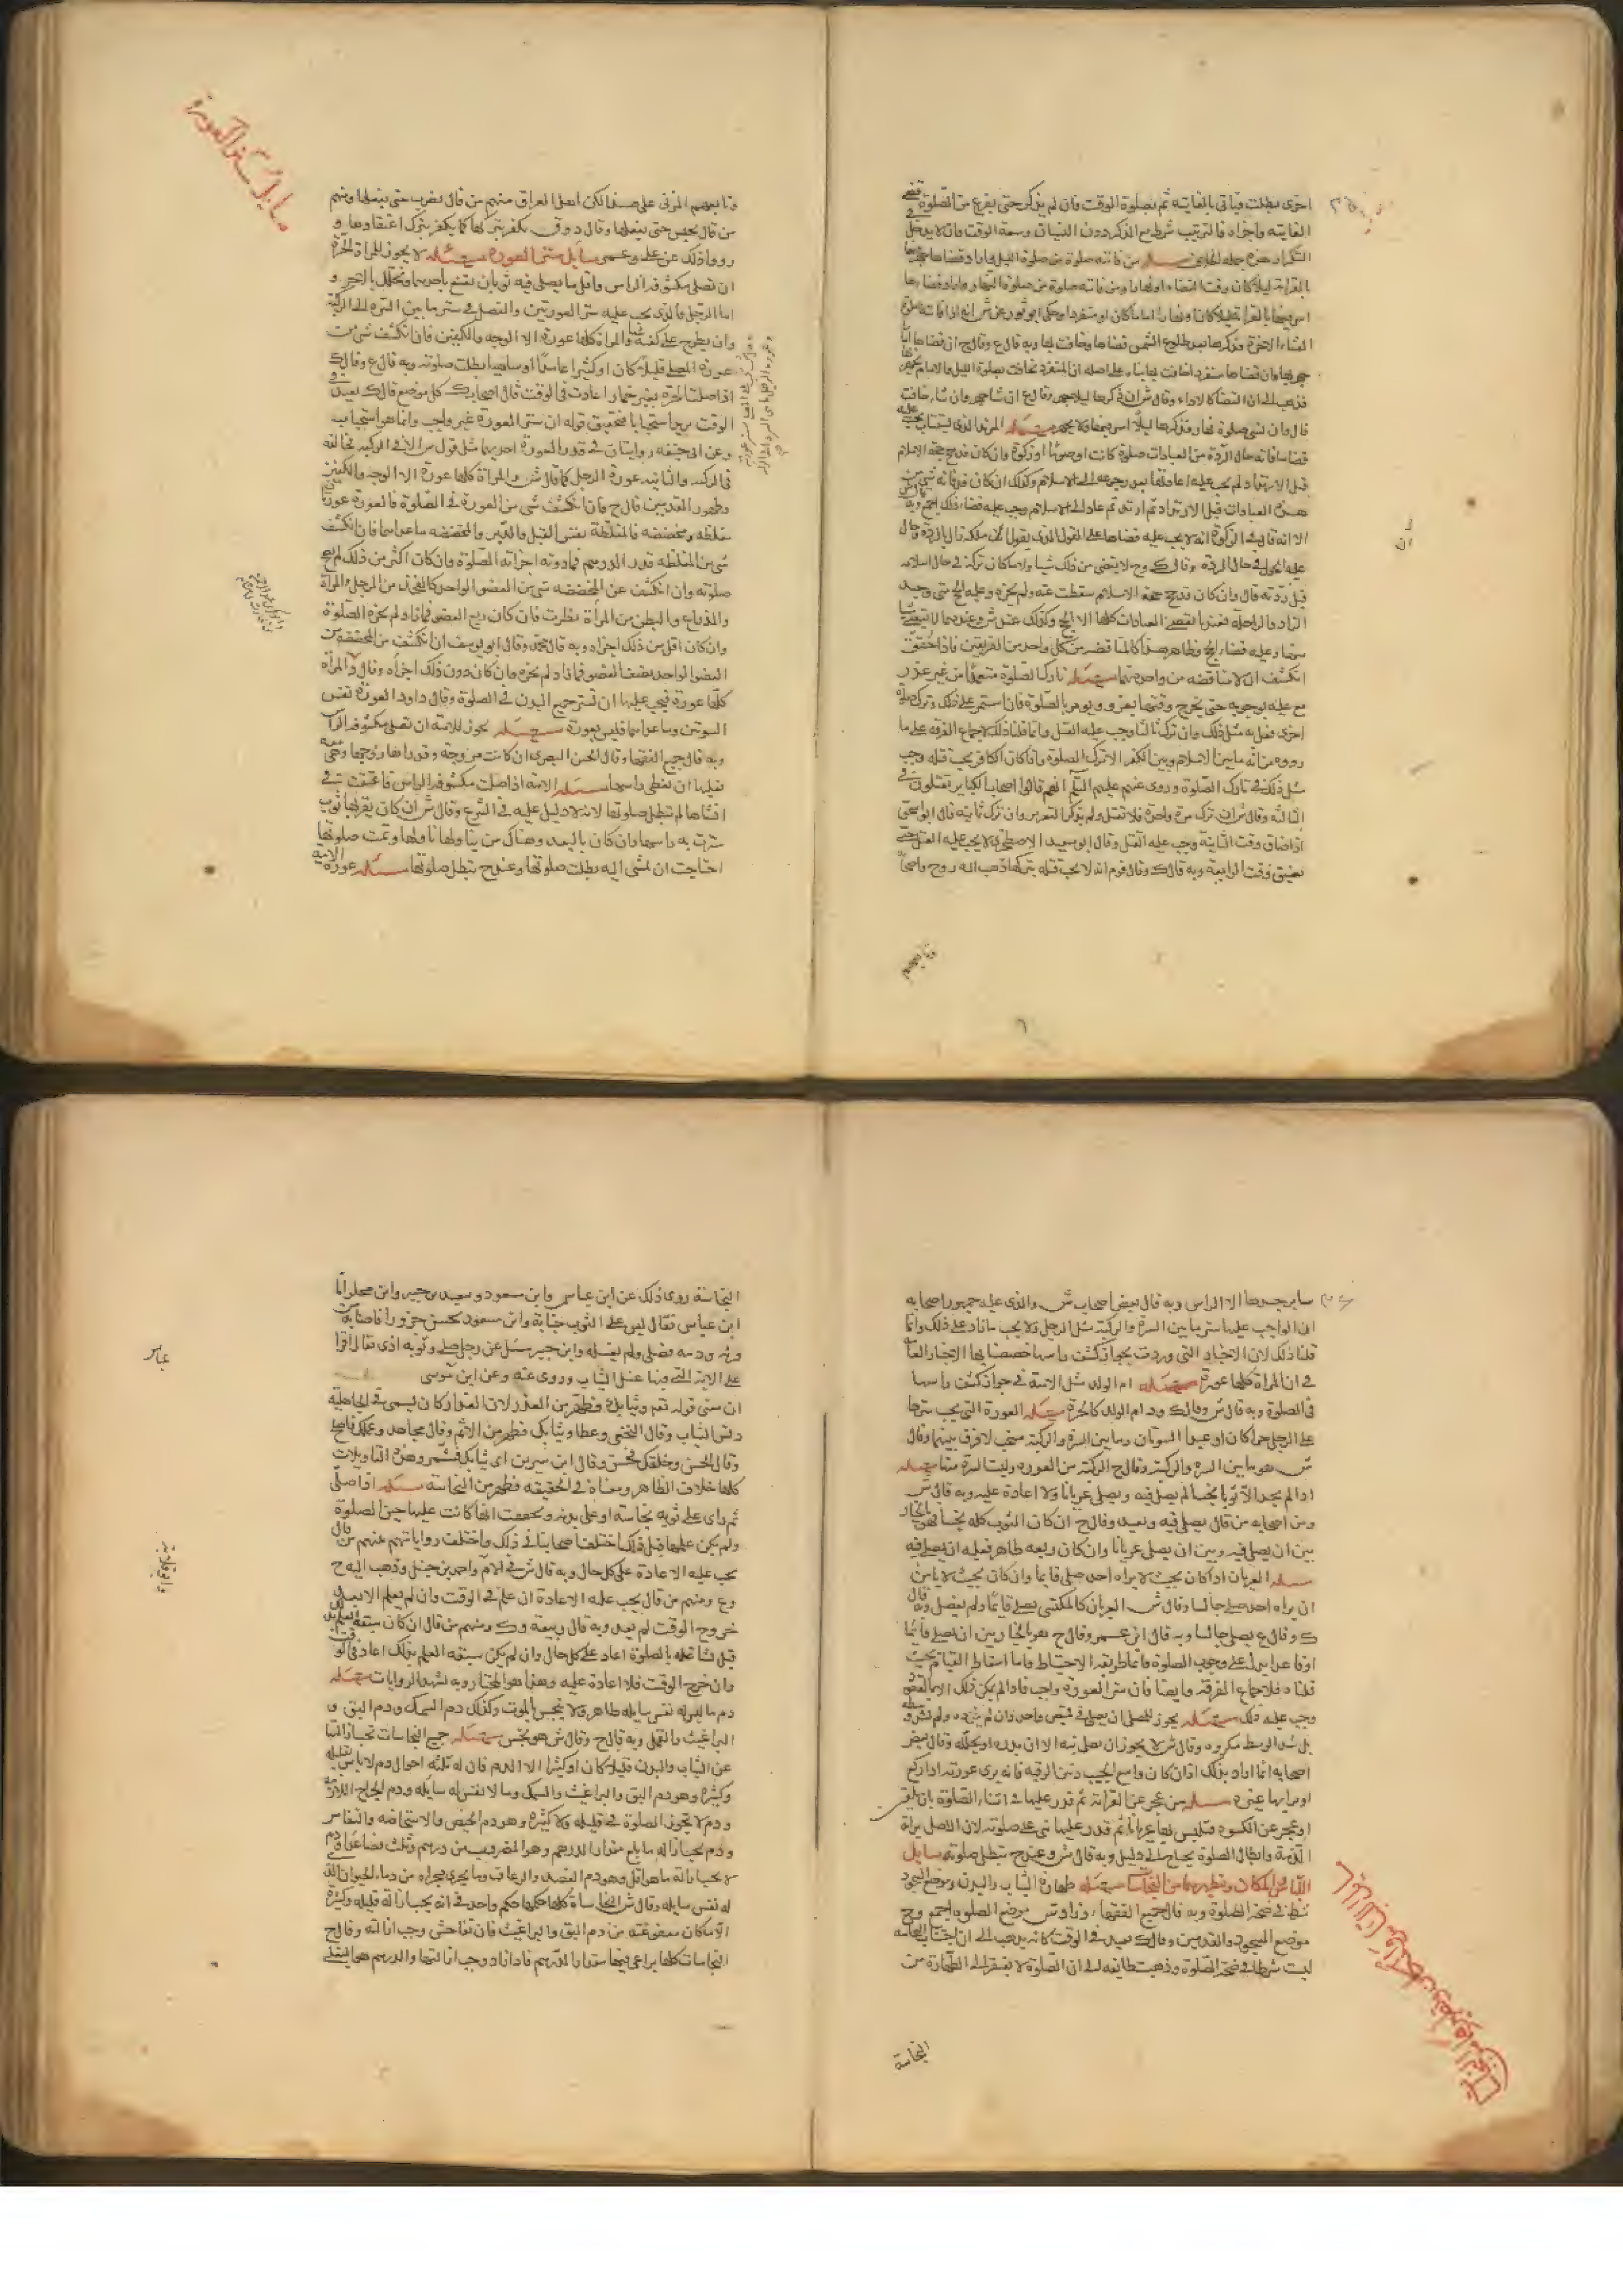 اخرى بطلت فياتى بالفايته ثم بصلوة الوقت فان لم يذكر حتى يفرغ من الصلوة قضى
الفايته واجزاه فالترتيب شرط مع الذكر دون النسيان وسعة الوقت فان لا يدخل فى
التكرار هذه جمله الخلاف مسئله من فاتته صلوة من صلوة الليل فاراد قضاها جهر فيها
بالقراءة ليلا كان وقت القضاء او نهارا ومن فاتته صلوة من صلوة النهار واراد قضاءها
اسر فيها بالقراءة ليلا كان او نهارا اماما كان او منفردا وحكى ابو ثور عن ش انه اذا فاتته صلوة
العشاء الاخرة فذكرها بعد طلوع الشمس قضاها وخافت بها وبه قال ع وقال ح ان قضاها اماما
جهر بها وان قضاها منفردا خافت بها بناء على اصله ان المنفرد يخافت بصلوة الليل والامام يجهر بها
فذهب الى ان القضا كالاداء وقال ش ان ذكرها ليلا جهر وقال ح ان شا جهر وان شاء خافت
قال وان نسى صلوة نهار فذكرها ليلا اسر فيها ولا يجهر مسئله المرتد الذى يستتاب يجب عليه
قضا ما فاته حال الردة من العبادات صلوة كانت او صوما او زكوة وان كان قد حج حجة الاسلام
قبل الارتداد لم يجب عليه اعادتها بعد رجوعه الى الاسلام وكذلك ان كان قد فاته شى من
هذه العبادات قبل الارتداد ثم ارتد ثم عاد الى الاسلام وجب عليه قضاء ذلك اجمع وبه قال ش
الا انه قال فى الزكوة انه لا يجب عليه قضاها على القول الذى يقول ان ملكه زال بالردة وحال
عليه الحول فى حال الردة وقال ك وح لا يقضى من ذلك شيا ولا ما كان تركه فى حال اسلامه
قبل ردته قال وان كان قد حج حجة الاسلام سقطت عنه ولم يجزه وعليه الحج متى وجد
الزاد والراحلة فعندهما يقضى العبادات كلها الا الحج وكذلك عند ش وعندهما لا يقضى شيا
منها وعليه قضاء الحج وظاهر هذا كالمناقضه من كل واحد من الفريقين فاذا حقق
انكشف ان لا مناقضه من واحد منهما مسئله تارك الصلوة متعمدا من غير عذر
مع علمه بوجوبه حتى يخرج وقتها يعزر ويومر بالصلوة فان استمر على ذلك وترك صلوة
اخرى فعل به مثل ذلك وان ترك ثالثا وجب عليه القتل وانما قلنا ذلك لاجماع الفرقة على ما
رووه من انه ما بين الاسلام وبين الكفر الا ترك الصلوة واذا كان الكافر يجب قتله وجب
مثل ذلك فى تارك الصلوة وروى عنهم عليهم السلم انهم قالوا اصحاب الكباير يقتلون فى
الثالثة وقال ش ان ترك مرة واحدة فلا تقتل ولم يذكر التعزير وان ترك ثانية قال ابو اسحق
اذا ضاق وقت الثانية وجب عليه القتل وقال ابو سعيد الاصطخرى لا يجب عليه القتل حتى
يضيق وقت الرابعة وبه قال ك وقال قوم انه لا يجب قتله بتركها ذهب اليه ر وح واصحابه
وتابعهم
وتابعهم المزنى على هذا لكن اهل العراق منهم من قال يضرب حتى يفعلها ومنهم
من قال يحبس حتى يفعلها وقال د وق يكفر بتركها كما يكفر بترك اعتقادها و
رووا ذلك عن على وعمر مسايل ستر العورة مسئله لا يجوز للمراة الحرة
ان تصلى مكشوفة الراس واقل ما يصلى فيه ثوبان تقنع باحدهما وتجلل بالاخر و
اما الرجل فالذى يجب عليه ستر العورتين والفضل فى ستر ما بين السرة الى الركبة
وان يطرح على كتفه شيا والمراة كلها عورة الا الوجه والكفين فان انكشف شى من
عورة المصلى قليلا كان او كثيرا عامدا او ساهيا بطلت صلوته وبه قال ع وقال ك
اذا صلت الحرة بغير خمار اعادت فى الوقت قال اصحاب ك كل موضع قال ك يعيد فى
الوقت يريد استحبابا فتحقيق قوله ان ستر العورة غير واجب وانما هو استحباب
وعن ابى حنيفه روايتان فى قدر العورة احديهما مثل قول ش الا فى الركبه فخالفه
فى الركبه والثانيه عورة الرجل كما قال ش والمراة كلها عورة الا الوجه والكفين
وظهور القدمين قال ح فان انكشف شى من العورة فى الصلوة فالعورة عورتان
مغلظه ومخففه فالمغلظة نفس القبل والدبر والمخففه ما عداهما فان انكشف
شى من المغلظه قدر الدرهم فما دونه اجزاته الصلوة وان كان اكثر من ذلك لم تصح
صلوته وان انكشف عن المخففه شى من العضو الواحد كالفخذ من الرجل والمراة
والذراع والبطن من المراة نظرت فان كان ربع العضو فما زاد لم تجزه الصلوة
وان كان اقل من ذلك اجزاه وبه قال محمد وقال ابو يوسف ان انكشف من المخففه من
العضو الواحد نصف العضو فما زاد لم تجزه وان كان دون ذلك اجزاه وقال د المراة
كلها عورة فيجب عليها ان تستر جميع البدن فى الصلوة وقال داود العورة نفس
السوئتين وما عداهما فليس بعورة مسئله يجوز للامة ان تصلى مكشوفه الراس
وبه قال جميع الفقها وقال الحسن البصرى ان كانت مزوجة وقد راها زوجها وقعى
فعليها ان تغطى راسها مسئله الامة اذا صلت مكشوفه الراس فاعتقت فى
اثنائها لم تبطل صلوتها لانه لا دليل عليه فى الشرع وقال ش ان كان بقربها ثوب
سترت به راسها وان كان بالبعد وهناك من يناولها ناولها وتمت صلوتها
احتاجت ان تمشى اليه بطلت صلوتها وعند ح تبطل صلوتها مسئله عورة الامة
مسايل ستر العورة
ساير جسدها الا الراس وبه قال بعض اصحاب ش والذى عليه جمهور اصحابه
ان الواجب عليها ستر ما بين السرة والركبة مثل الرجل ولا يجب ما زاد على ذلك وانما
قلنا ذلك لان الاخبار التى وردت بجواز كشف راسها خصصنا بها الاخبار العامة
فى ان المراة كلها عورة مسئله ام الولد مثل الامة فى جواز كشف راسها
فى الصلوة وبه قال ش وقال ك ود ام الولد كالحرة مسئله العورة التى يجب سترها
على الرجل حرا كان او عبدا السوتان وما بين السرة والركبة مستحب لا فرق بينهما وقال
ش هو ما بين السرة والركبة وقال ح الركبة من العورة وليت السرة منها مسئله
اذا لم يجد الا ثوبا نجسا لم يصل فيه ويصلى عريانا ولا اعادة عليه وبه قال ش
ومن اصحابه من قال يصلى فيه ويعيد وقال ح ان كان الثوب كله نجسا فهو بالخيار
بين ان يصلى فيه وبين ان يصلى عريانا وان كان ربعه طاهر فعليه ان يصلى فيه
مسئله العريان اذا كان بحيث لا يراه احد صلى قايما وان كان بحيث لا يامن
ان يراه احد صلى جالسا وقال ش العريان كالمكتسى يصلى قايما ولم يفصل وبه قال
ك وقال ع يصلى جالسا وبه قال ابن عمر وقال ح هو بالخيار بين ان يصلى قايما
او قاعدا دليلنا على وجوب الصلوة قايما طريقه الاحتياط فاما اسقاط القيام بحيث
قلناه فلاجماع الفرقه وايضا فان ستر العورة واجب فاذا لم يكن ذلك الا بالقعود
وجب عليه ذلك مسئله يجوز للمصلى ان يصلى فى قميص واحد وان لم يزره ولم يشد وسطه
بل شد الوسط مكروه وقال ش لا يجوز ان يصلى فيه الا ان يزره او يخلله وقال بعض
اصحابه انما اراد بذلك اذا كان واسع الجيب دقيق الرقبه فانه يرى عورته اذا ركع
او يراها غيره مسئله من عجز عن القراءة ثم قدر عليها فى اثناء الصلوة بان تلقن
او عجز عن الكسوه فتلبس بها عريانا ثم قدر عليها بنى على صلوته لان الاصل براة
الذمة وابطال الصلوة يحتاج الى دليل وبه قال ش وعند ح تبطل صلوته مسايل
اللباس والمكان وتطهيرهما من النجاسات مسئله طهارة الثياب والبدن وموضع السجود
شرط فى صحة الصلوة وبه قال جميع الفقها وزاد ش موضع الصلوه اجمع وح
موضع السجود والقدمين وقال ك يعيد فى الوقت كانه يذهب الى ان اجتناب النجاسه
ليست شرطا فى صحة الصلوة وذهبت طايفه الى ان الصلوة لا يفتقر الى الطهارة من
النجاسة
النجاسة روى ذلك عن ابن عباس وابن مسعود وسعيد بن جبير وابن مجلز اما
ابن عباس فقال ليس على الثوب جنابة وابن مسعود نحر جزورا فاصابه من
فرثه ودمه فصلى ولم يغسله وابن جبير سئل عن رجل صلى وثوبه اذى فقال اقرا
على الاية التى فيها غسل الثياب وروى عنه وعن ابن موسى
ان معنى قوله تعم وثيابك فطهر من العذر لان الغدار كان يسمى فى الجاهلية
دنس الثياب وقال النخعى وعطا وثيابك فطهر من الاثم وقال مجاهد وعملك فاصلح
وقال الحسن وخلقك فحسن وقال ابن سيرين اى ثيابك فشمر وهذه التاويلات
كلها خلاف الظاهر ومعناه فى الحقيقه فطهر من النجاسة مسئله اذا صلى
ثم راى على ثوبه نجاسة او على بدنه وتحقق انها كانت عليه حين الصلوة
ولم يكن علم بها قبل ذلك اختلف اصحابنا فى ذلك واختلفت رواياتهم فمنهم من قال
يجب عليه الاعادة على كل حال وبه قال ش فى الام واحمد بن حنبل وذهب اليه ح
وع ومنهم من قال يجب عليه الاعادة ان علم فى الوقت وان لم يعلم الا بعد
خروج الوقت لم يعد وبه قال ربيعة وك ومنهم من قال ان كان سبقه العلم بذلك
قبل تشاغله بالصلوة اعاد على كل حال وان لم يكن سبقه العلم بذلك اعاد فى الوقت
وان خرج الوقت فلا اعادة عليه وهذا هو المختار وبه تشهد الروايات مسئله
دم ما ليس له نفس سايله طاهر ولا ينجس بالموت وكذلك دم السمك ودم البق و
البراغيث والقمل وبه قال ح وقال ش هو نجس مسئله جميع النجاسات تجب ازالتها
عن الثياب والبدن قليلا كان او كثيرا الا الدم فان له ثلثه احوال دم لا باس بقليله
وكثيره وهو دم البق والبراغيث والسمك وما لا نفس له سايله ودم الجراح اللازمة
ودم لا يجوز الصلوة فى قليله ولا كثيره وهو دم الحيض والاستحاضه والنفاس
ودم تجب ازاله ما بلغ مقدار الدرهم وهو المضروب من درهم وثلث فصاعدا ودم
لا يجب ازالة ما هو اقل وهو دم الفصد والرعاف وما يجرى مجراه من دماء الحيوان الذى
له نفس سايله وقال ش النجاسات كلها حكمها حكم واحد فى انه يجب ازالة قليله وكثيره
الا ما كان معفو عنه من دم البق والبراغيث فان تفاحش وجب ازالته وقال ح
النجاسات كلها يراعى فيها مقدار الدرهم فاذا زاد وجب ازالتها والدرهم هو البغلى
عباس